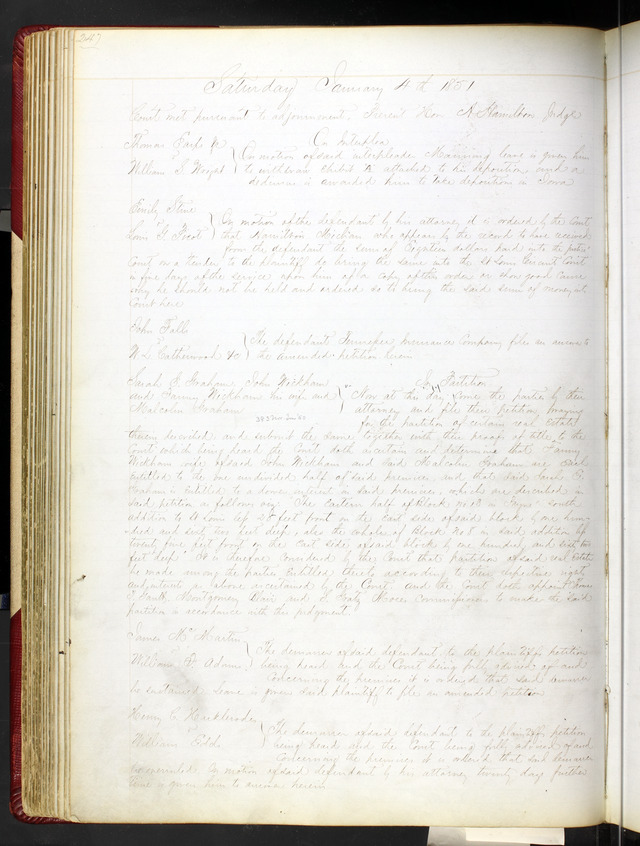 247
Saturday January 4th 1851
Court met pursuant to adjournment. Present Hon A Hamilton Judge
Thomas Earp Jr
On Interplea
William S. Wright
On motion of said interpleader leave is given him
to withdraw exhibit attached to his deposition and a
dedimus is awarded him to take depositions in Iowa
Emily Stine
On motion of the defendant by his attorney it is ordered by the Court
that Hamilton who appears by the record to have received
from the defendant the sum of Eighteen dollars paid into the
Court on a tender to the plaintiff do bring the same into the St Louis Circuit Court
in five days of the service upon him of a copy of this order or show good cause
why he should not be held and ordered so to bring the said sum of money into
Court here
John Fall
The defendant Insurance Company files its answer to
the amended petition herein
Sarah Graham John Wickham
In Partition
and Fanny Wickham his wife and
Malcolm Graham
Now at this day come the parties by their
attorney and file their petition praying
for the partition of certain real Estate
therein described and submit the same together with their proofs of title to the
Court which being heard the Court doth ascertain and determine that Fanny
Wickham wife of said John Wickham and said Malcolm Graham are each
entitled to the one undivided half of said premises and that said
Graham is entitled to a dower interest in said premises, which are described in
said petition as follows viz The Eastern half of Block No in South
addition to St Louis feet front on the East side of said block by one
and sixty two feet deep, also the whole of Block No 8 in said addition
feet front on the East side of said block by one hundred and
feet deep. It is therefore considered by the Court that partition of said real Estate
be made among the parties entitled thereto according to their respective rights
as above ascertained by the Court and the Court doth appoint
Montgomery Blair and Moore Commissioners to make the said
partition in accordance with this judgment.
James McMartin
William Adams
The demurrer of said defendant to the plaintiffs petition
being heard and the Court being fully advised of and
concerning the premises it is ordered that said demurrer
be sustained. Leave is given said plaintiff to file an amended petition
Henry C.
William Eddi
The demurrer of said defendant to the plaintiffs petition
being heard and the Court being fully advised of and
concerning the premises it is ordered that said demurrer
be overruled. On motion of said defendant by his attorney twenty days further
time is given him to answer herein